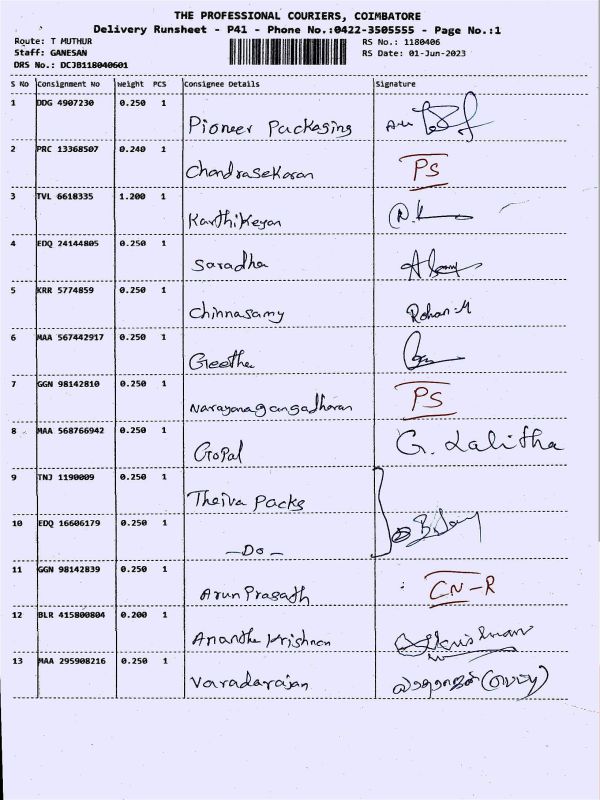 THE PROFESSIONAL COURIERS, COIMBATORE
Delivery Runsheet - P41 - Phone No.:0422-3505555 - Page No.:1
Route: T MUTHUR RS No.: 1180406
Staff: GANESAN RS Date: 01-Jun-2023
DRS No.: DCJB118040601
S No Consignment No Weight PCS Consignee Details Signature
1 DDG 4907230 0.250 1
Pioneer Packaging
2 PRC 13368507 0.240 1
Chandrasekaran PS
3 TVL 6618335 1.200 1
Karthikeyan
4 EDQ 24144805 0.250 1
Saradha
5 KRR 5774859 0.250 1
Chinnasamy Rohan-M
6 MAA 567442917 0.250 1
Geetha
7 GGN 98142810 0.250 1
Narayanagangadharan PS
8 MAA 568766942 0.250 1
Gopal G. Lalitha
9 TNJ 1190009 0.250 1
Theiva Packs
10 EDQ 16606179 0.250 1
-Do-
11 GGN 98142839 0.250 1
ArunPrasath CN-R
12 BLR 415800804 0.200 1
Anantha Krishnan
13 MAA 295908216 0.250 1
Varadarajan